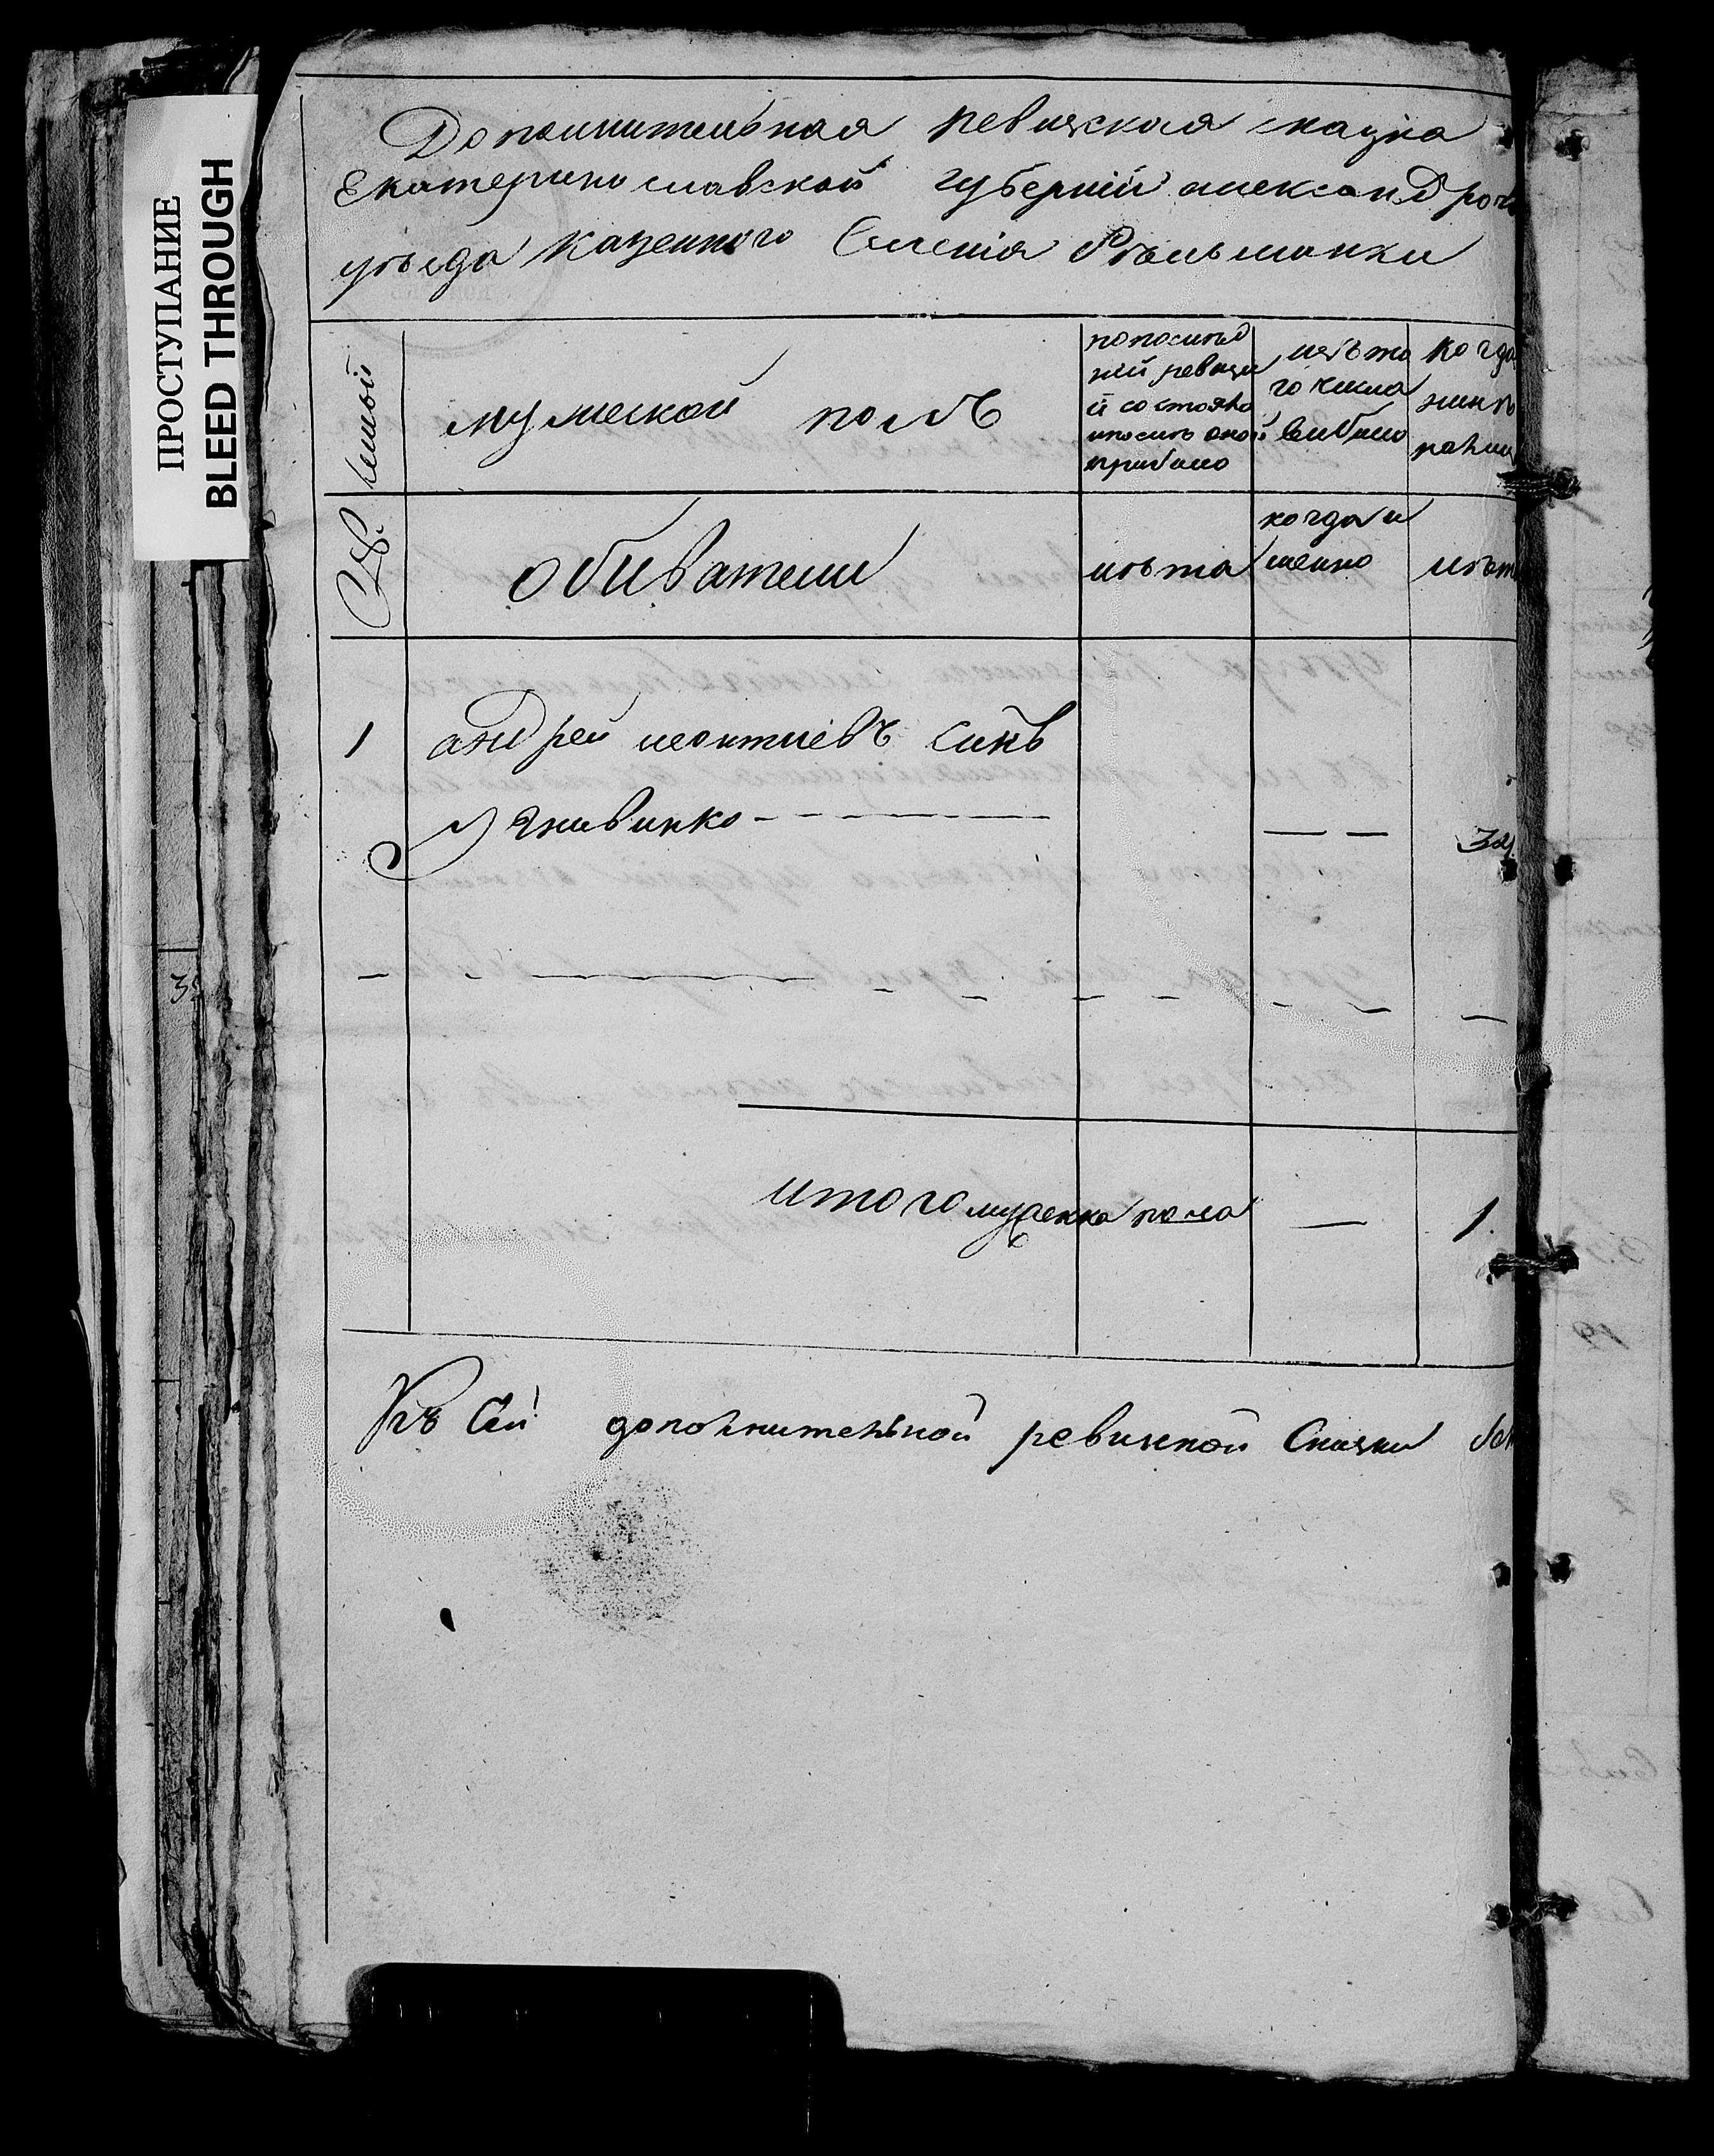 ПРОСТУПАНИЕ
BLEED THROUGH
Дополнительная ревизская сказка
Екатеринославской губерній александров
уѣзда казенного Селенія
семьи
мужеской полъ
попослѣд
ней ревизи
й состояло
ипослѣ оной
прибыло
изъ то
го числа
выбыло
когда
нинѣ
налиц
обиватели
лѣта
когда и
менно
лѣт
1 андрей леонтиевъ синъ
32
итого мужеска пола — 1.
Къ Сей дополнительной ревизкой Сказки